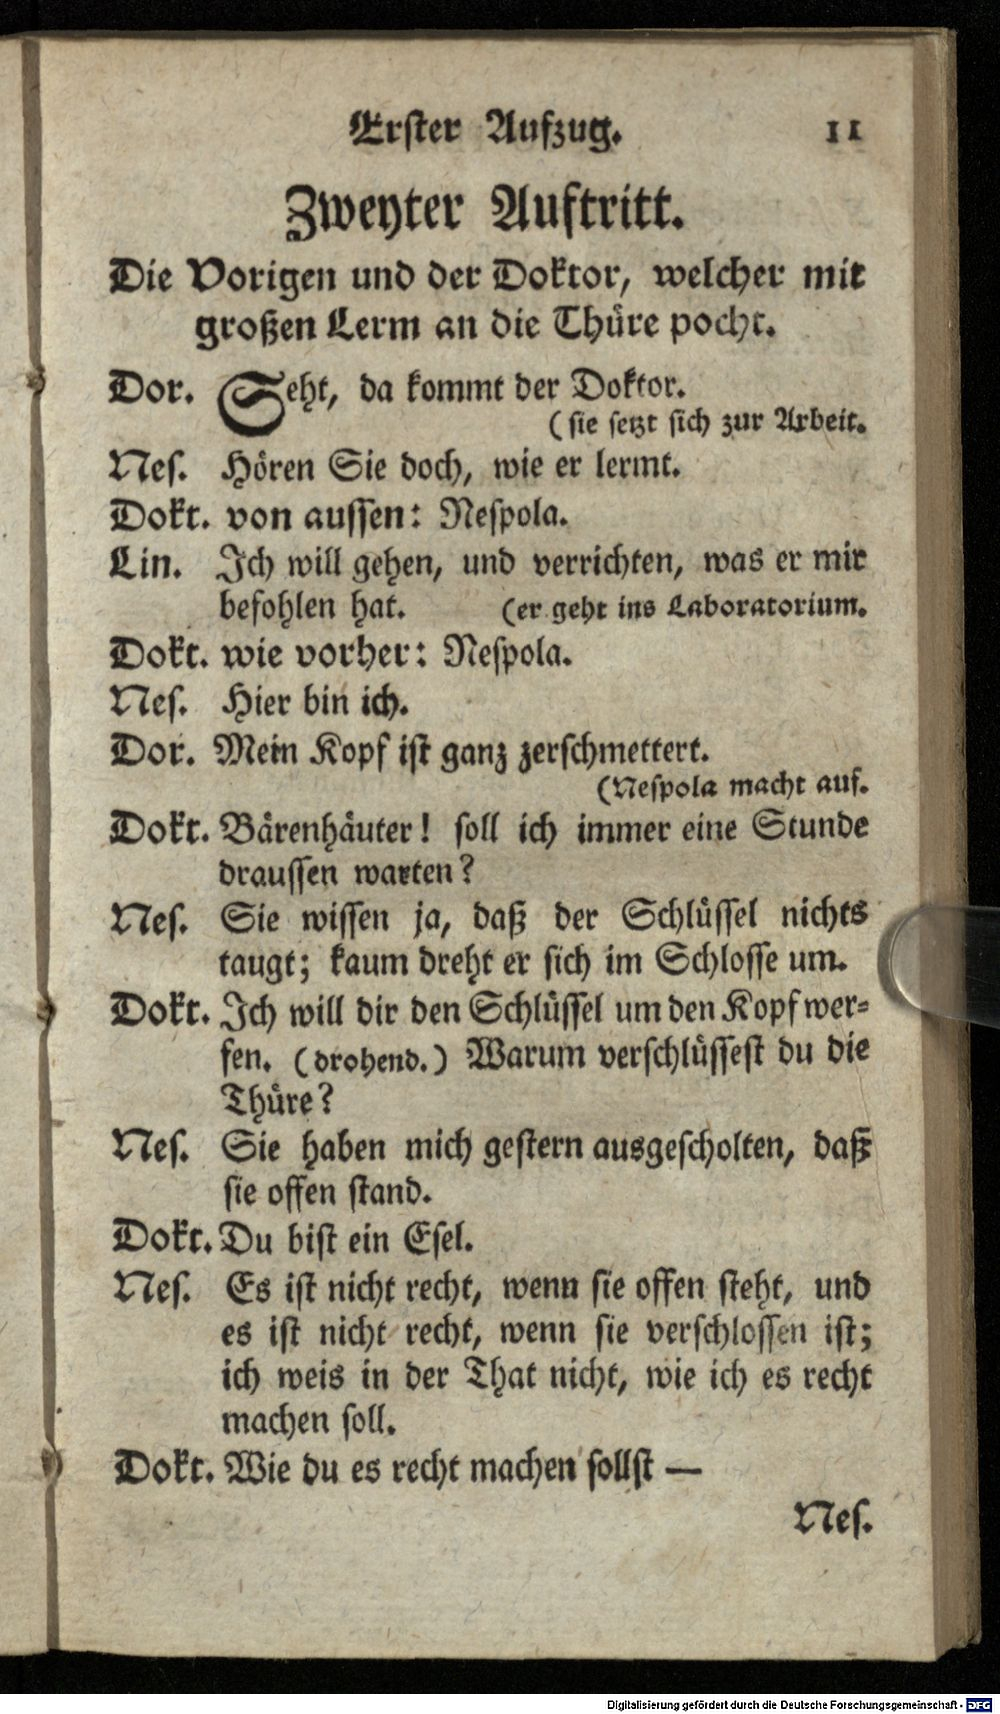 Erster Aufzug. 11
Zweyter Auftritt.
Die Vorigen und der Doktor, welcher mit
großen Lerm an die Thüre pocht.
Dor. Seht, da kommt der Doktor.
(sie setzt sich zur Arbeit.
Nes. Hören Sie doch, wie er lermt.
Dokt. von aussen: Nespola.
Lin. Ich will gehen, und verrichten, was er mir
befohlen hat. (er geht ins Laboratorium.
Dokt. wie vorher: Nespola.
Nes. Hier bin ich.
Dor. Mein Kopf ist ganz zerschmettert.
(Nespola macht auf.
Dokt. Bärenhäuter! soll ich immer eine Stunde
draussen warten?
Nes. Sie wissen ja, daß der Schlüssel nichts
taugt; kaum dreht er sich im Schlosse um.
Dokt. Ich will dir den Schlüssel um den Kopf wer-
fen. (drohend.) Warum verschlüssest du die
Thüre?
Nes. Sie haben mich gestern ausgescholten, daß
sie offen stand.
Dokt. Du bist ein Esel.
Nes. Es ist nicht recht, wenn sie offen steht, und
es ist nicht recht, wenn sie verschlossen ist;
ich weis in der That nicht, wie ich es recht
machen soll.
Dokt. Wie du es recht machen sollst —
Nes.
Digitalisierung gefördert durch die Deutsche Forschungsgemeinschaft - DFG